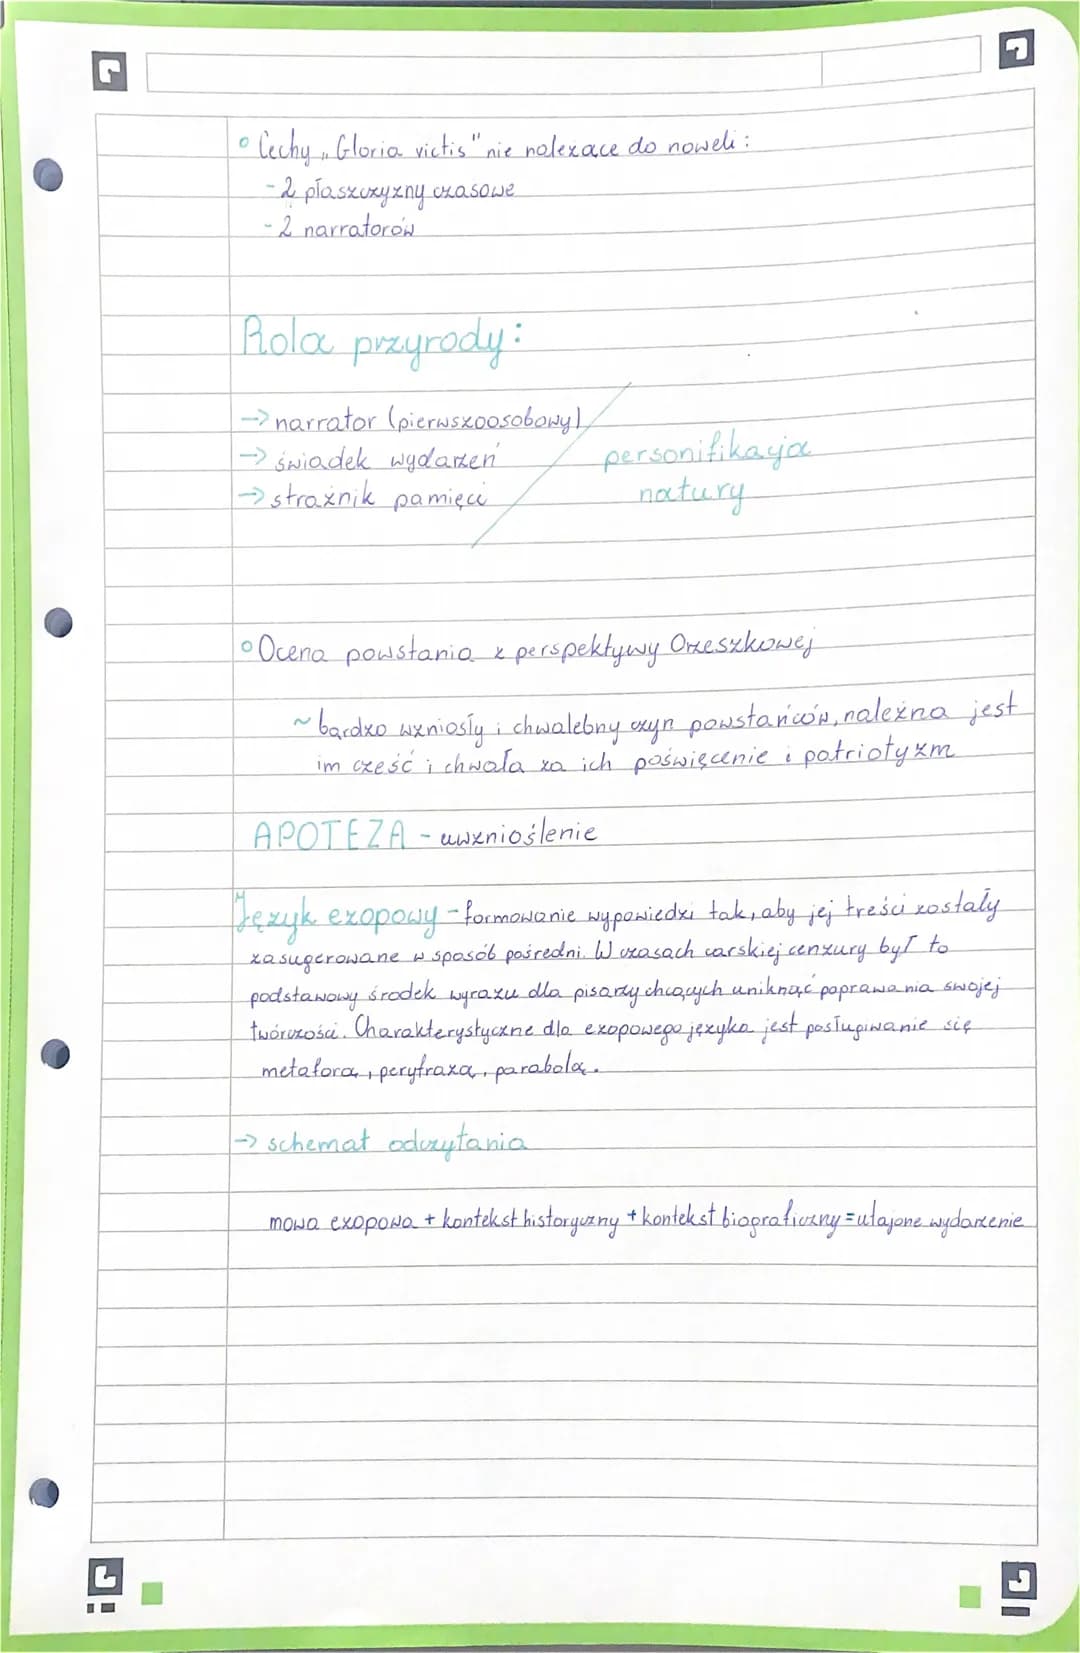 Cechy „Gloria victis" nie należące do noweli:
- 2 płaszczyzny czasowe
- 2 narratorów
Rola przyrody:
→ narrator (pierwszoosobowy)
→ świadek wydarzeń
→ strażnik pamięci
personifikacja
natury
Ocena powstania z perspektywy Orzeszkowej
~ bardzo wzniosły i chwalebny czyn powstańców, należna jest
im cześć i chwała za ich poświęcenie i patriotyzm
APOTEZA - uwznioślenie
Język ezopowy - formowanie wypowiedzi tak, aby jej treści zostały
zasugerowane w sposób pośredni. W czasach carskiej cenzury był to
podstawowy środek wyrazu dla pisarzy chcących uniknąć poprawiania swojej
twórczości. Charakterystyczne dla ezopowego języka jest posługiwanie się
metaforą, peryfrazą, parabolą.
→ schemat odczytania
mowa ezopowa + kontekst historyczny + kontekst biograficzny = utajone wydarzenie